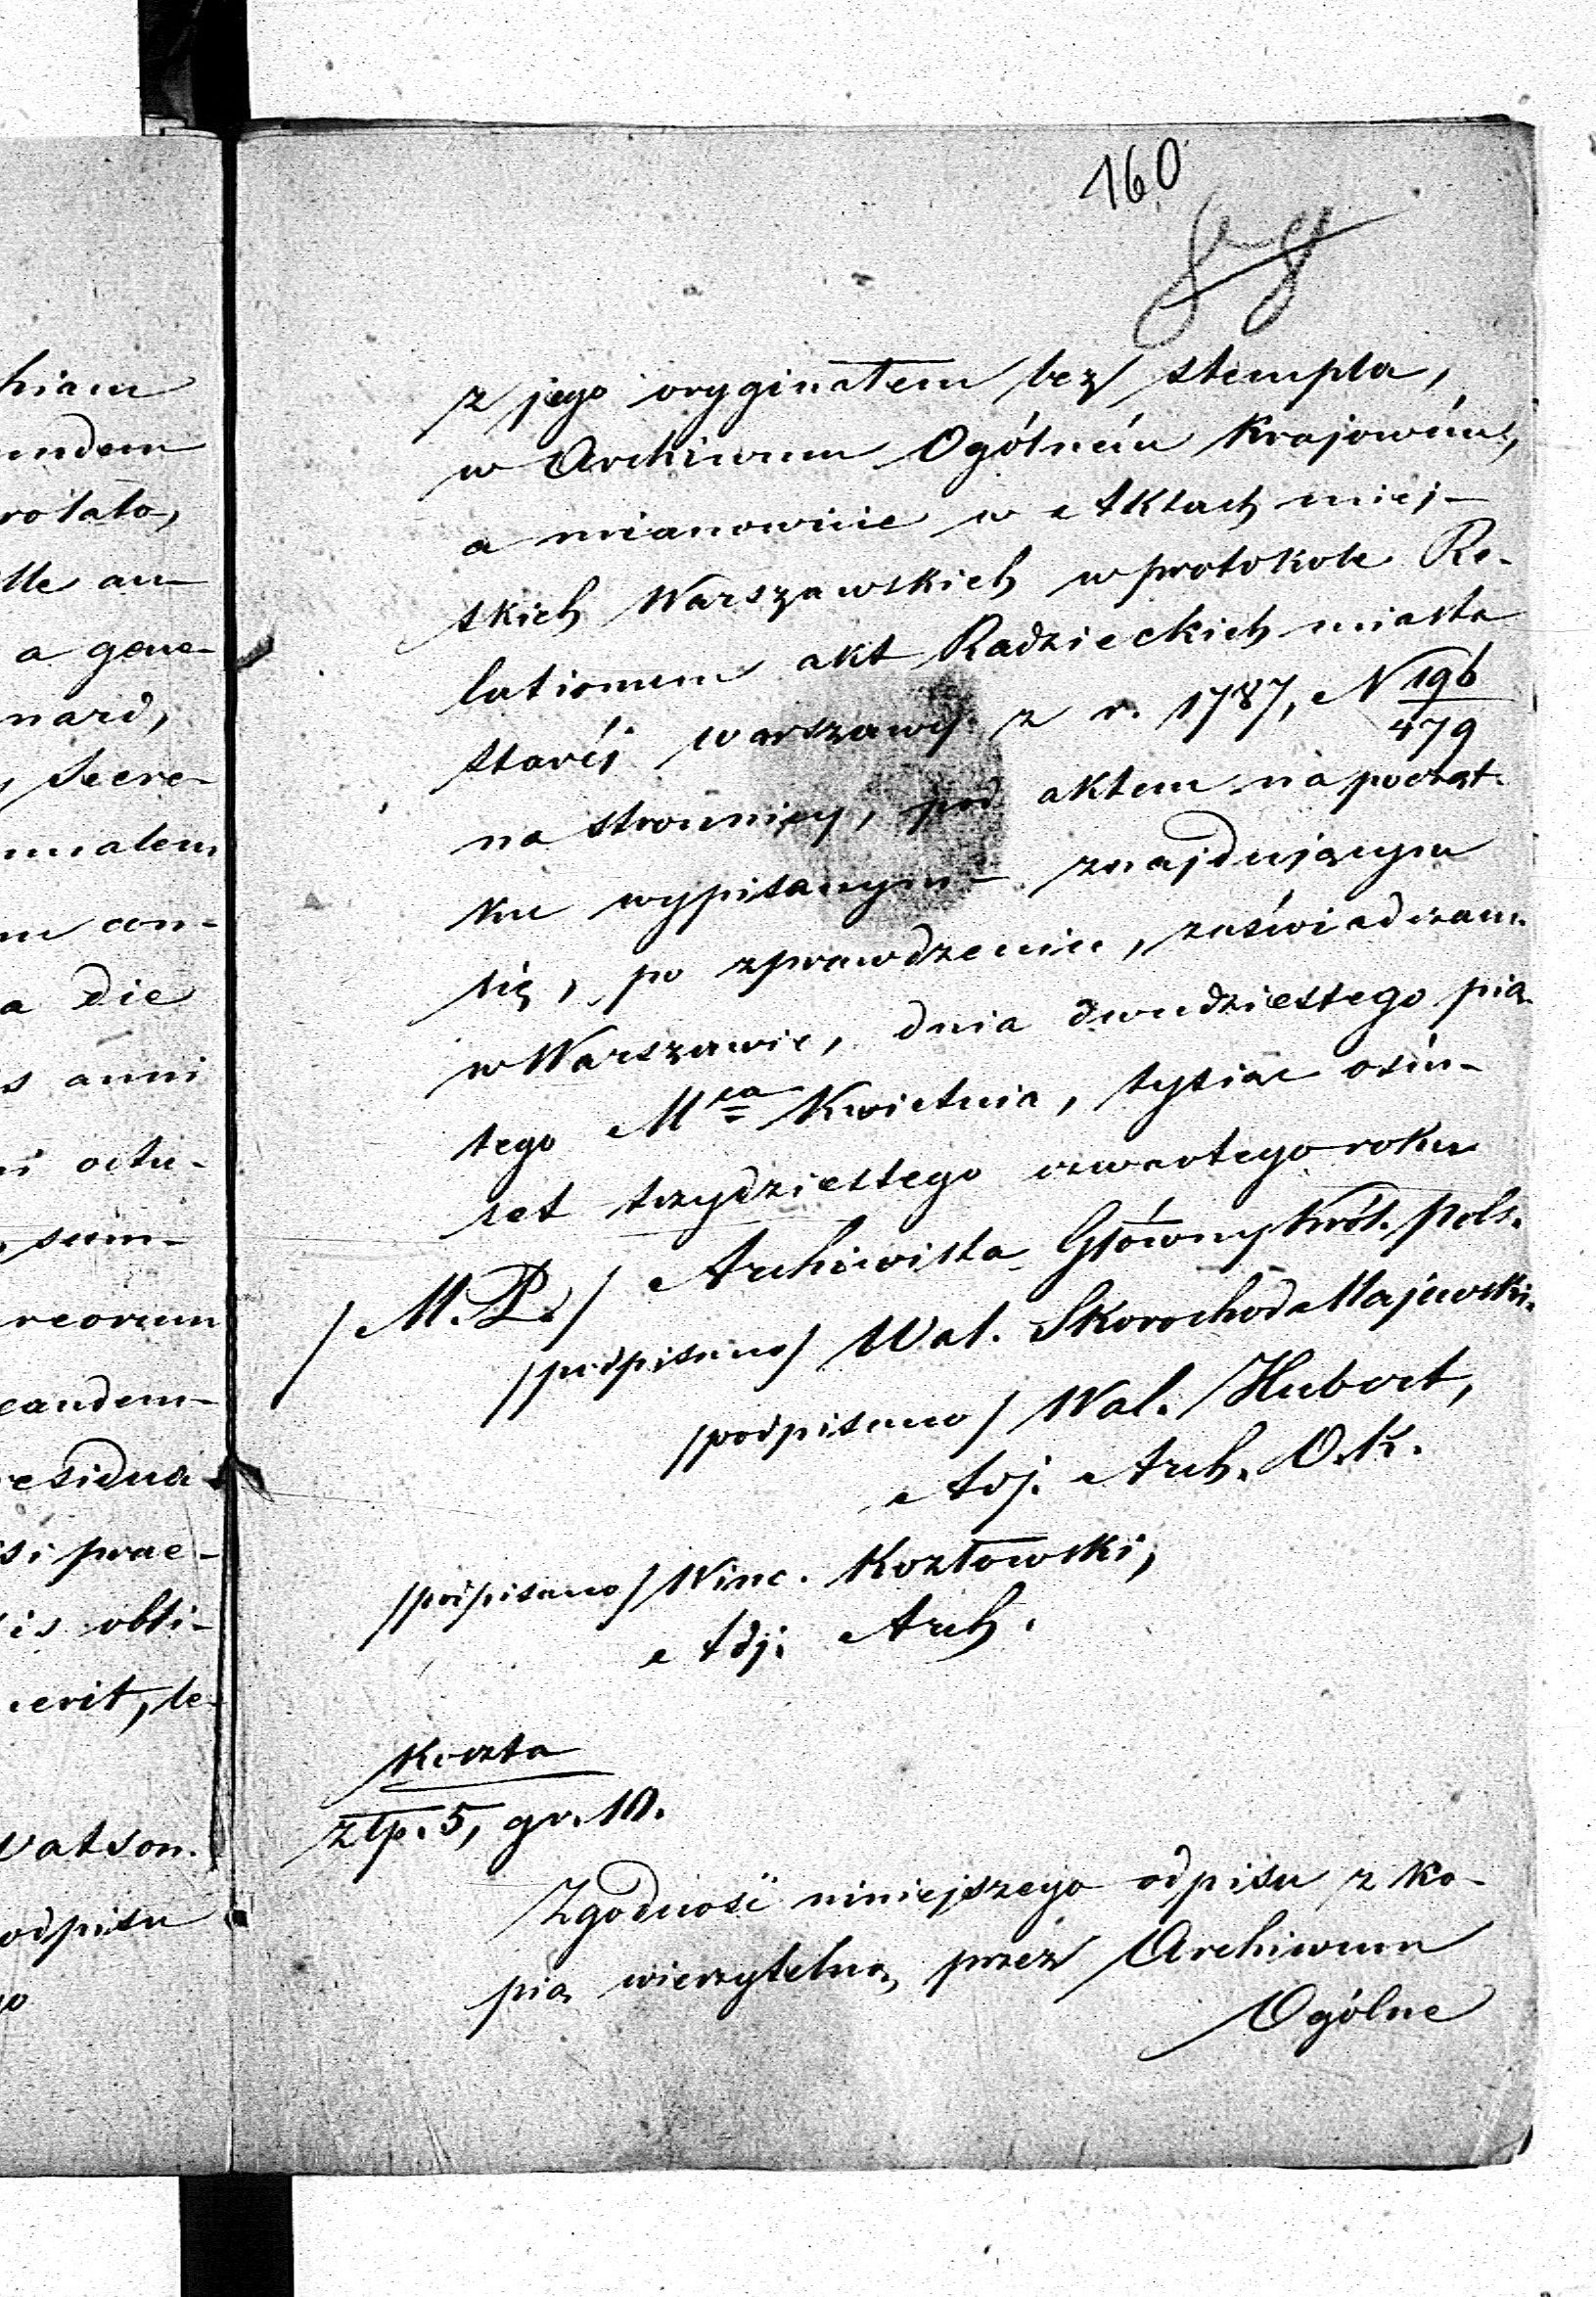 160
z jego oryginałem bez stempla,
w Archiwum Ogólném Krajowém,
a mianowicie w Aktach miej-
skich Warszawskich w protokole Re-
lationum akt Radzieckich miasta
staréj warszawy z r. 1787, N 196/479
na stronnicy, pod aktem na począt-
ku wypisanym – znajdującym
się, po zprawdzeniu, zaświadczam.
w Warszawie, dnia dwudziestego pią-
tego Mca Kwietnia, tysiąc ośm-
set trzydziestego czwartego roku
/M.P./ Archiwista Główny Król. Pols.
/podpisano/ Wal. Skorochod Majewski.
/podpisano/ Wal. Hubert,
Adj. Arch. O.K.
/podpisano/ Winc. Kozłowski,
Adj. Arch.
Koszta
złp. 5, gr. 10.
Zgodność niniejszego odpisu z ko-
pią wierzytelną przez Archiwum
Ogólne
hiam
undem
rotato,
lle au-
a gene-
nard,
Secre-
con-
a die
s anni
octu-
sum-
reorum
eandem-
residua
si prae-
is obli-
erit, le-
Watson.
odpisu